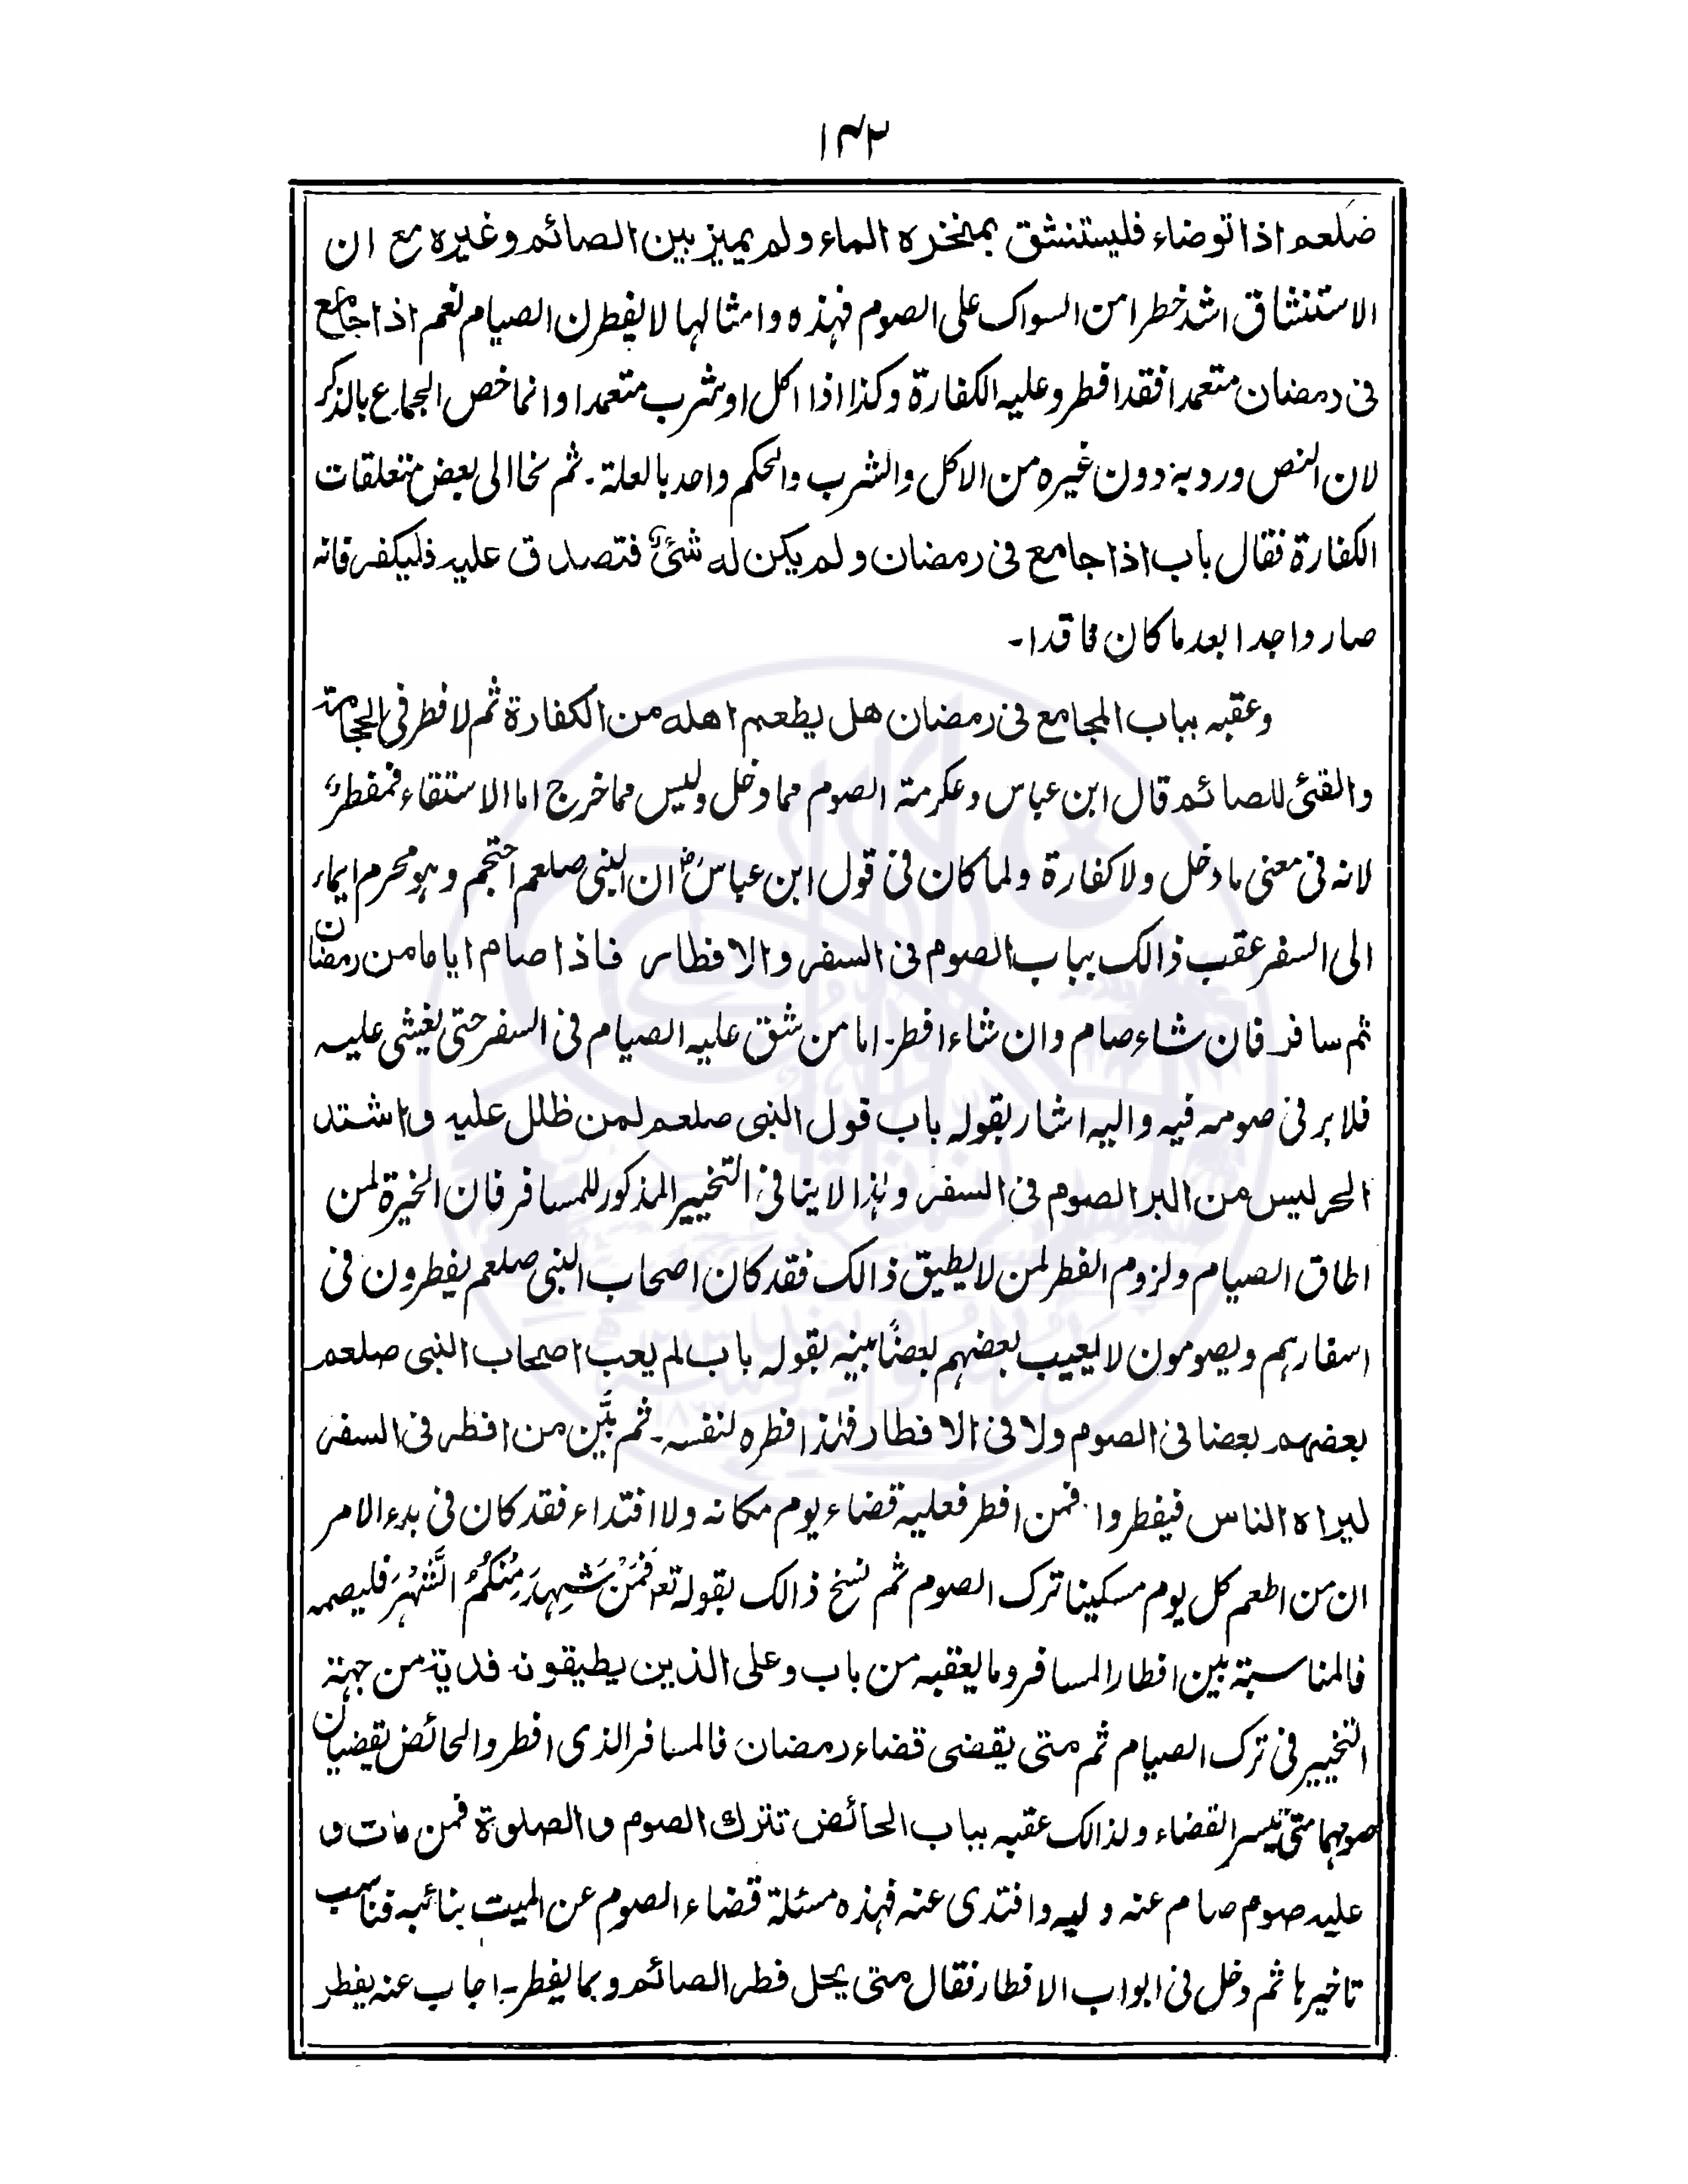 ١٤٢
صلعم اذا توضاء فليستنشق بمنخره الماء ولم يميز بين الصائم وغيره مع ان
الاستنشاق اشد خطرا من السواك على الصوم فهذه وامثالها لا يفطرن الصيام نعم اذا جامع
فى رمضان متعمدا فقد افطر وعليه الكفارة وكذا اذا اكل او شرب متعمدا وانما خص الجماع بالذكر
لان النص ورد به دون غيره من الاكل والشرب والحكم واحد بالعلة ۔ ثم نحا الى بعض متعلقات
الكفارة فقال باب اذا جامع فى رمضان ولم يكن له شئٌ فتصدق عليه فليكفر فانه
صار واجدا بعد ما كان فاقدا ۔
وعقبه بباب المجامع فى رمضان هل يطعم اهله من الكفارة ثم لا فطر فى الحجامة
والقئى للصائم قال ابن عباس وعكرمة الصوم مما دخل وليس مما خرج اما الاستقاء فمفطر،
لانه فى معنى ما دخل ولا كفارة ولما كان فى قول ابن عباسؓ ان النبى صلعم احتجم وهو محرم ايماء
الى السفر عقب ذالك بباب الصوم فى السفر والافطار فاذا صام اياما من رمضان
ثم سافر فان شاء صام وان شاء افطر ۔ اما من شق عليه الصيام فى السفر حتى يغشى عليه
فلا بر فى صومه فيه واليه اشار بقوله باب قول النبى صلعم لمن ظلل عليه واشتد
الحر ليس من البر الصوم فى السفر وهٰذا لا ينافى التخيير المذكور للمسافر فان الخيرة لمن
اطاق الصيام ولزوم الفطر لمن لا يطيق ذالك فقد كان اصحاب النبى صلعم يفطرون فى
اسفارهم ويصومون لا يعيب بعضهم بعضًا بينه بقوله باب لم يعب اصحاب النبى صلعم
بعضهم بعضا فى الصوم ولا فى الافطار فهٰذا فطره لنفسه ۔ ثم بيَّن من افطر فى السفر
ليراه الناس فيفطروا فمن افطر فعليه قضاء يوم مكانه ولا افتداء فقد كان فى بدء الامر
ان من اطعم كل يوم مسكينا ترك الصوم ثم نسخ ذالك بقوله تع فَمَنْ شَهِدَ مِنْكُمُ الشَّهْرَ فليصمه
فالمناسبة بين افطار المسافر وما يعقبه من باب وعلى الذين يطيقونه فدية من جهة
التخيير فى ترك الصيام ثم متى يقضى قضاء رمضان فالمسافر الذى افطر والحائض يقضيان
صومهما متى تيسر القضاء ولذالك عقبه بباب الحائض تترك الصوم والصلوة فمن مات و
عليه صوم صام عنه وليه وافتدى عنه فهذه مسئلة قضاء الصوم عن الميت بنائبه فناسب
تاخيرها ثم دخل فى ابواب الافطار فقال متى يحل فطر الصائم وبما يفطر ۔ اجاب عنه يفطر